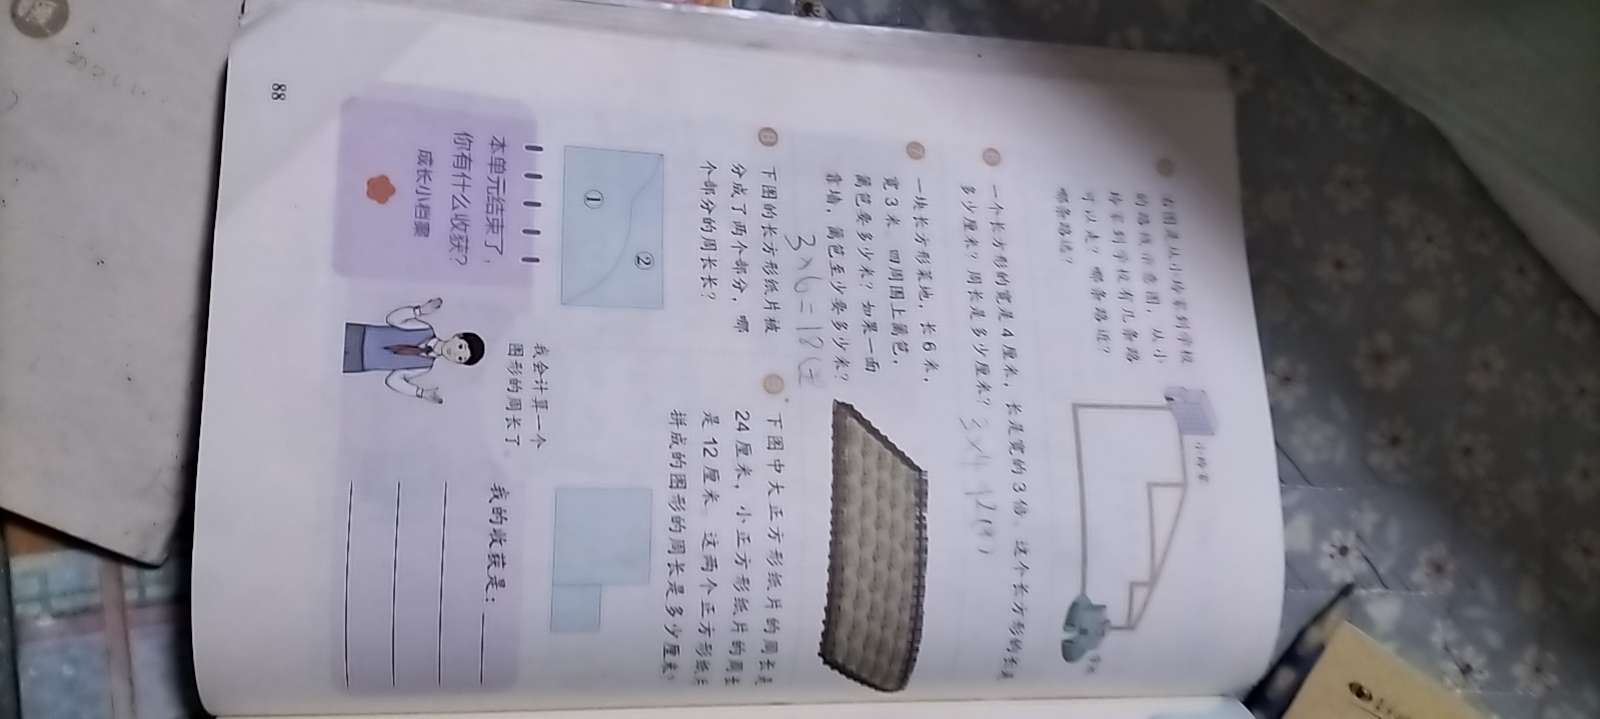 右图是从小玲家到学校
的路线示意图，从小
玲家到学校有几条路
可以走？哪条路近？
哪条路远？
小玲家
学校
6 一个长方形的宽是 4 厘米，长是宽的 3 倍。这个长方形的长是
多少厘米？周长是多少厘米？
7 一块长方形菜地，长 6 米，
宽 3 米。四周围上篱笆，
篱笆要多少米？如果一面
靠墙，篱笆至少要多少米？
3×6=18
8 下图的长方形纸片被
分成了两个部分，哪
个部分的周长长？
①
②
下图中大正方形纸片的周长是
24 厘米，小正方形纸片的周长
是 12 厘米。这两个正方形纸片
拼成的图形的周长是多少厘米？
本单元结束了，
你有什么收获？
成长小档案
我会计算一个
图形的周长了。
我的收获是：
88